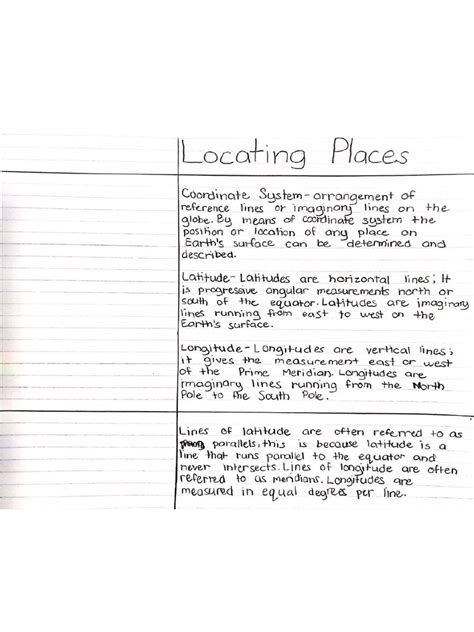 Locating Places
Coordinate System- arrangement of
reference lines or imaginary lines on the
globe. By means of coordinate system the
position or location of any place on
Earth's surface can be determined and
described.
Latitude- Latitudes are horizontal lines; It
is progressive angular measurements north or
south of the equator. Latitudes are imaginary
lines running from east to west on the
Earth's surface.
Longitude- Longitudes are vertical lines;
it gives the measurement east or west
of the Prime Meridian. Longitudes are
imaginary lines running from the North
Pole to the South Pole.
Lines of latitude are often referred to as
parallels, this is because latitude is a
line that runs parallel to the equator and
never intersects. Lines of longitude are often
referred to as meridians. Longitudes are
measured in equal degrees per line.